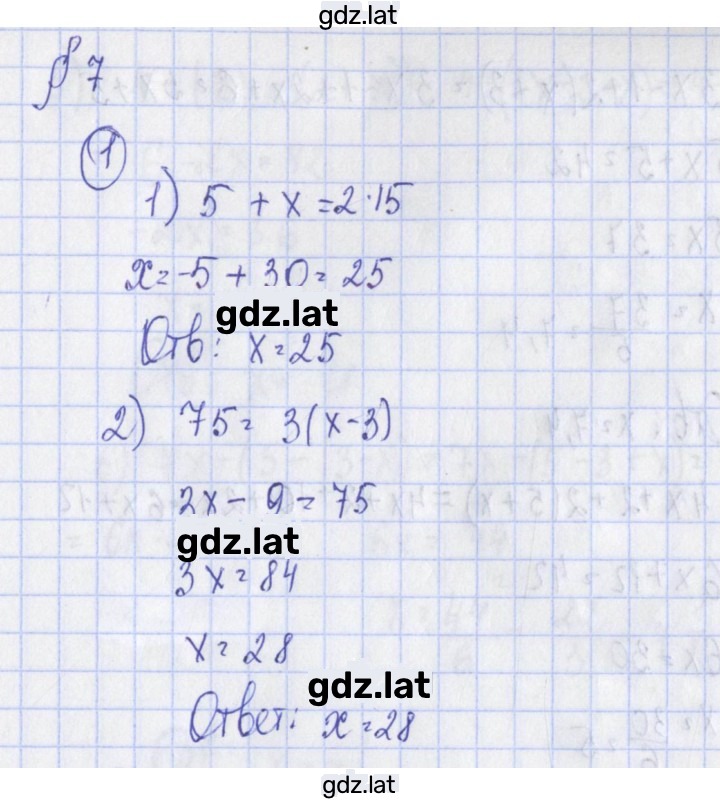 gdz.lat
§ 7
1
1) 5 + x = 2·15
x = -5 + 30 = 25
gdz.lat
Отв: x = 25
2) 75 = 3(x-3)
2x - 9 = 75
gdz.lat
3x = 84
x = 28
gdz.lat
Ответ: x = 28
gdz.lat